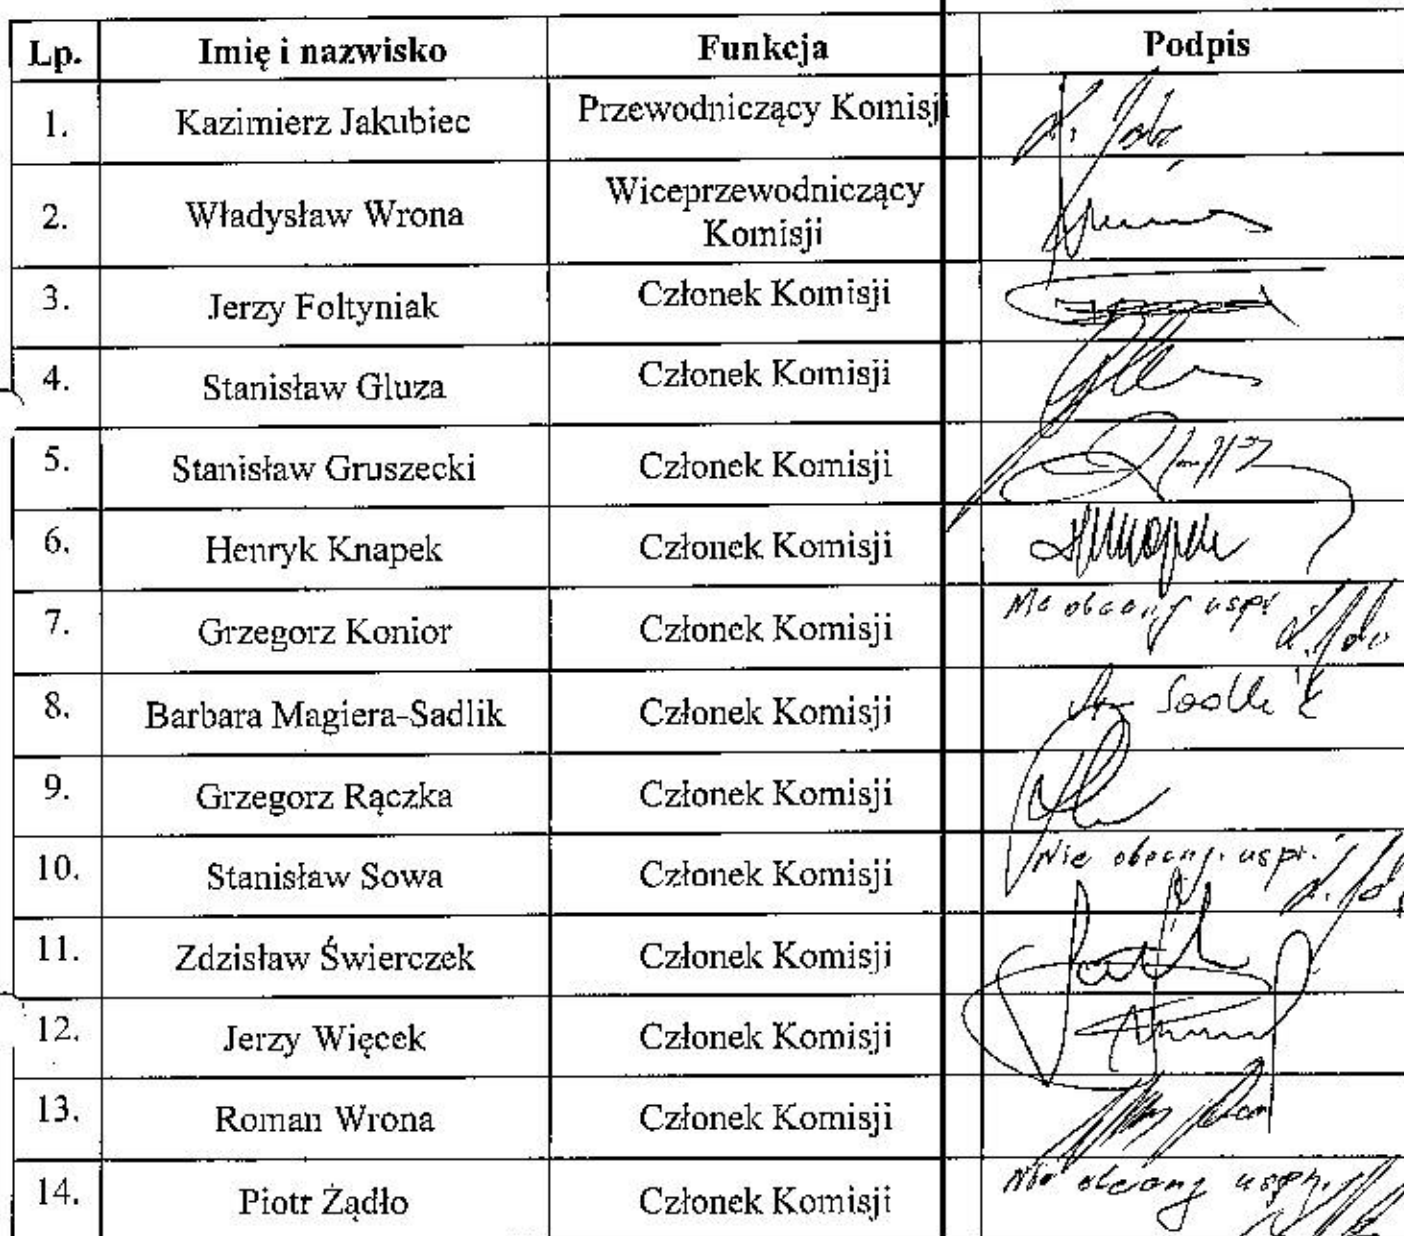 Lp. Imię i nazwisko Funkcja Podpis
1. Kazimierz Jakubiec Przewodniczący Komisji
2. Władysław Wrona Wiceprzewodniczący
Komisji
3. Jerzy Foltyniak Członek Komisji
4. Stanisław Gluza Członek Komisji
5. Stanisław Gruszecki Członek Komisji
6. Henryk Knapek Członek Komisji
7. Grzegorz Konior Członek Komisji Nie obecny uspr.
8. Barbara Magiera-Sadlik Członek Komisji Sadlik
9. Grzegorz Rączka Członek Komisji
10. Stanisław Sowa Członek Komisji Nie obecny. uspr.
11. Zdzisław Świerczek Członek Komisji
12. Jerzy Więcek Członek Komisji
13. Roman Wrona Członek Komisji
14. Piotr Żądło Członek Komisji Nie obecny uspr.